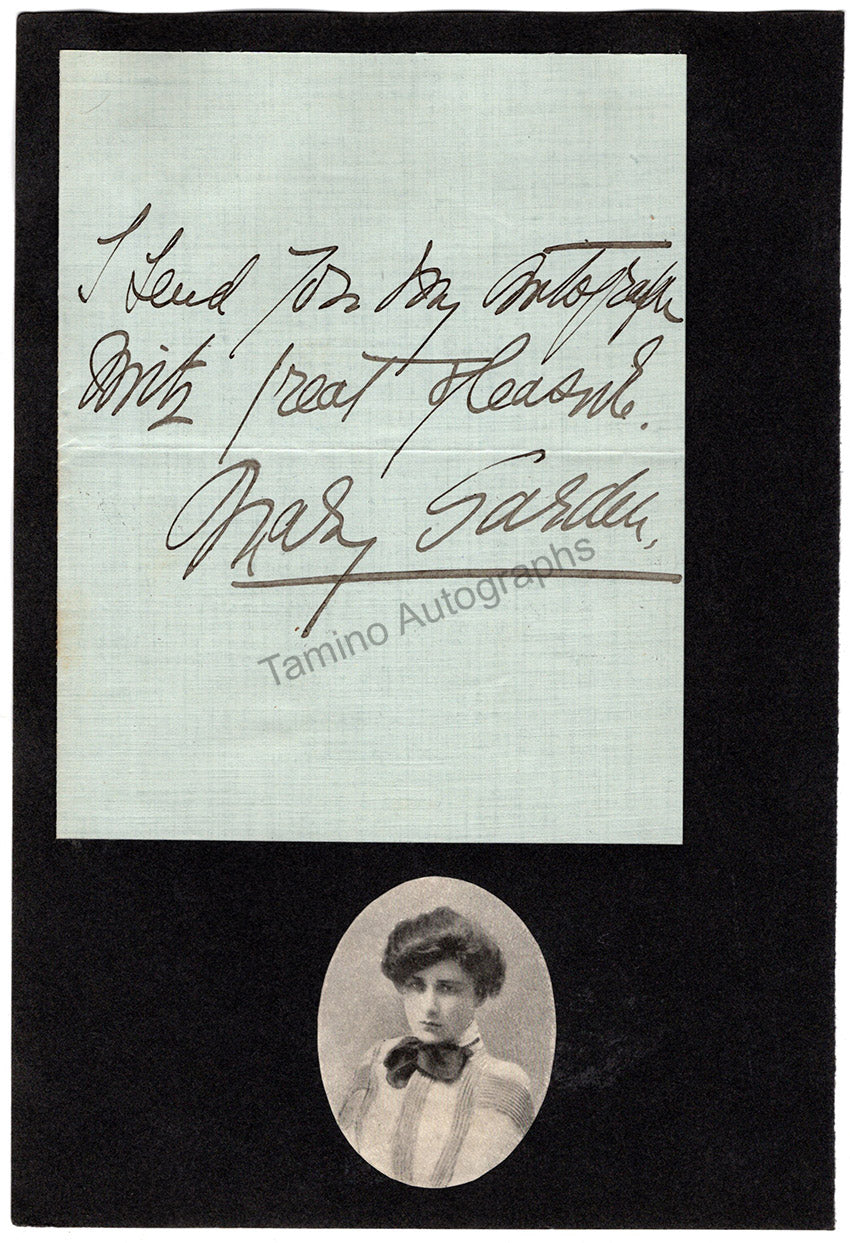 I Send You my Autograph
With great pleasure.
Mary Garden.
Tamino Autographs